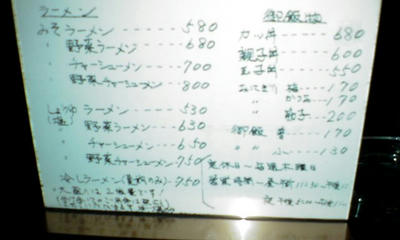 ラーメン
みそラーメン------580
〃 野菜ラーメン-----680
〃 チャーシューメン----700
〃 野菜チャーシューメン---800
しょうゆ ラーメン------530
(塩) 野菜ラーメン-----630
〃 チャーシューメン----650
〃 野菜チャーシューメン---750
冷しラーメン(夏期のみ)--750
御飯物
カツ丼------680
親子丼------600
玉子丼-----550
おにぎり 梅-----170
〃 かつお---170
〃 筋子---200
御飯 普----170
〃 小----130
定休日〜毎週木曜日
営業時間〜昼 午前11:30〜午後
夜 午後5:00〜午後